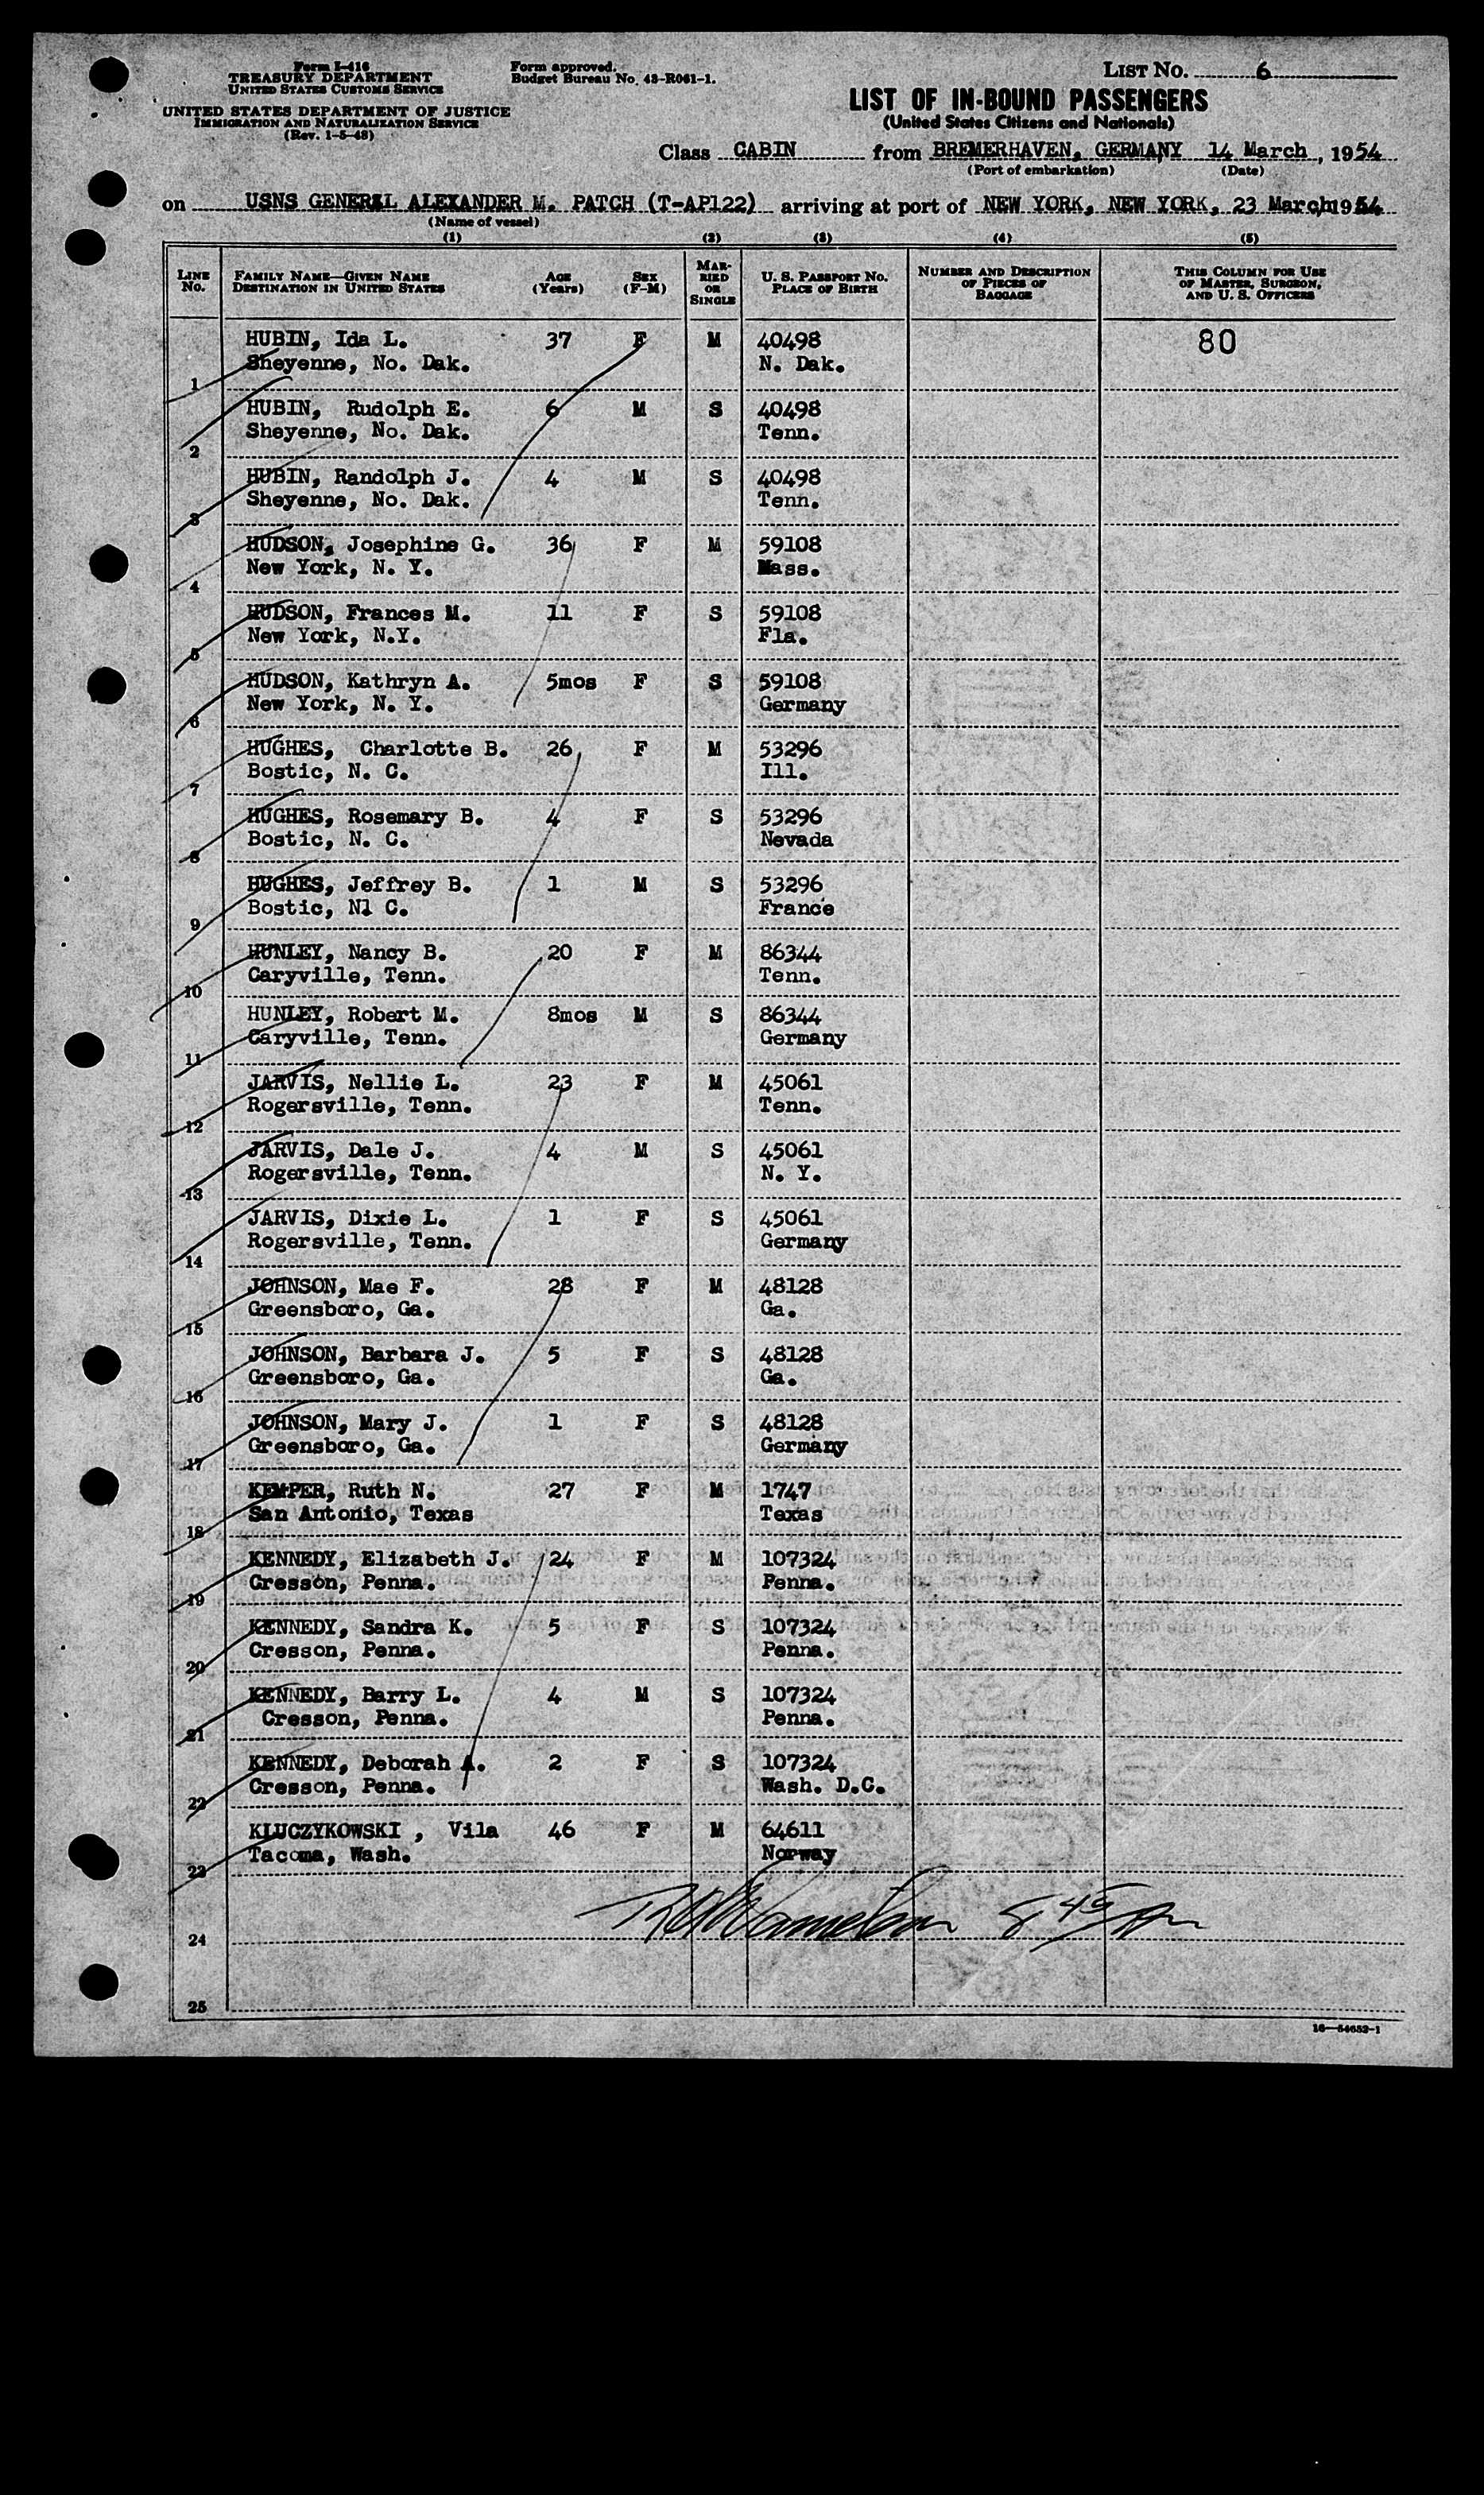 Form I-416
TREASURY DEPARTMENT
UNITED STATES CUSTOMS SERVICE
UNITED STATES DEPARTMENT OF JUSTICE
IMMIGRATION AND NATURALIZATION SERVICE
(Rev. 1-5-48)
Form approved.
Budget Bureau No. 43-R061-1.
LIST NO. 6
LIST OF IN-BOUND PASSENGERS
(United States Citizens and Nationals)
Class CABIN from BREMERHAVEN, GERMANY 14 March, 1954
(Port of embarkation) (Date)
on USNS GENERAL ALEXANDER M. PATCH (T-AP122) arriving at port of NEW YORK, NEW YORK, 23 March, 1954
(Name of vessel)
(1) (2) (3) (4) (5)
LINE NO. FAMILY NAME—GIVEN NAME DESTINATION IN UNITED STATES AGE (Years) SEX (F-M) MARRIED OR SINGLE U. S. PASSPORT NO. PLACE OF BIRTH NUMBER AND DESCRIPTION OF PIECES OF BAGGAGE THIS COLUMN FOR USE OF MASTER, SURGEON, AND U. S. OFFICERS
HUBIN, Ida L. 37 F M 40498 80
1 Sheyenne, No. Dak. N. Dak.
HUBIN, Rudolph E. 6 M S 40498
2 Sheyenne, No. Dak. Tenn.
HUBIN, Randolph J. 4 M S 40498
3 Sheyenne, No. Dak. Tenn.
HUDSON, Josephine G. 36 F M 59108
4 New York, N. Y. Mass.
HUDSON, Frances M. 11 F S 59108
5 New York, N.Y. Fla.
HUDSON, Kathryn A. 5mos F S 59108
6 New York, N. Y. Germany
HUGHES, Charlotte B. 26 F M 53296
7 Bostic, N. C. Ill.
HUGHES, Rosemary B. 4 F S 53296
8 Bostic, N. C. Nevada
HUGHES, Jeffrey B. 1 M S 53296
9 Bostic, Nl C. France
HUNLEY, Nancy B. 20 F M 86344
10 Caryville, Tenn. Tenn.
HUNLEY, Robert M. 8mos M S 86344
11 Caryville, Tenn. Germany
JARVIS, Nellie L. 23 F M 45061
12 Rogersville, Tenn. Tenn.
JARVIS, Dale J. 4 M S 45061
13 Rogersville, Tenn. N. Y.
JARVIS, Dixie L. 1 F S 45061
14 Rogersville, Tenn. Germany
JOHNSON, Mae F. 28 F M 48128
15 Greensboro, Ga. Ga.
JOHNSON, Barbara J. 5 F S 48128
16 Greensboro, Ga. Ga.
JOHNSON, Mary J. 1 F S 48128
17 Greensboro, Ga. Germany
KEMPER, Ruth N. 27 F M 1747
18 San Antonio, Texas Texas
KENNEDY, Elizabeth J. 24 F M 107324
19 Cresson, Penna. Penna.
KENNEDY, Sandra K. 5 F S 107324
20 Cresson, Penna. Penna.
KENNEDY, Barry L. 4 M S 107324
21 Cresson, Penna. Penna.
KENNEDY, Deborah A. 2 F S 107324
22 Cresson, Penna. Wash. D.C.
KLUCZYKOWSKI , Vila 46 F M 64611
23 Tacoma, Wash. Norway
24
25
16—54652-1